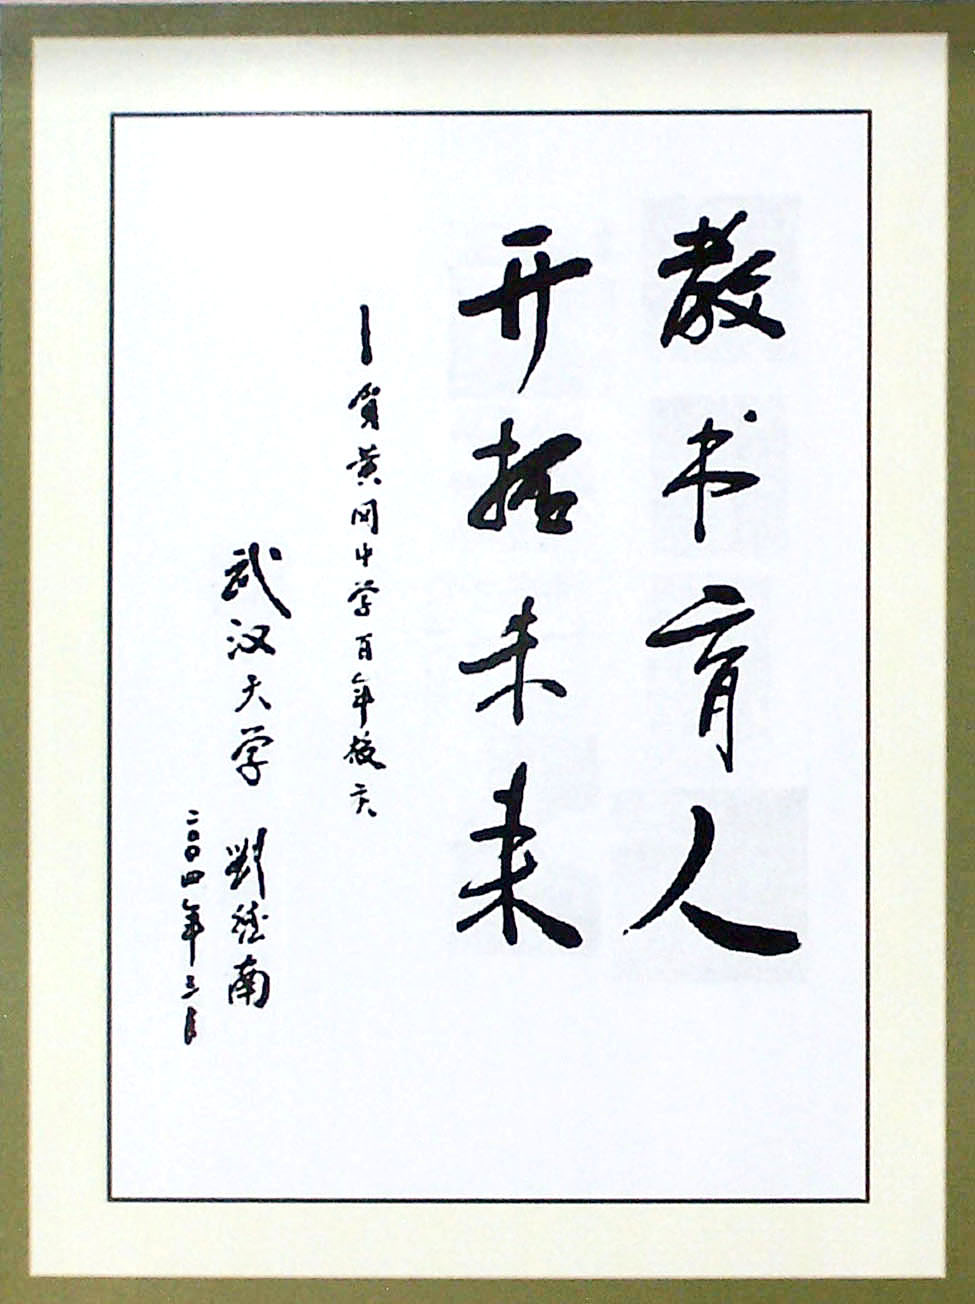 教书育人
开拓未来
—贺黄冈中学百年校庆
武汉大学 刘经南
二〇〇四年三月